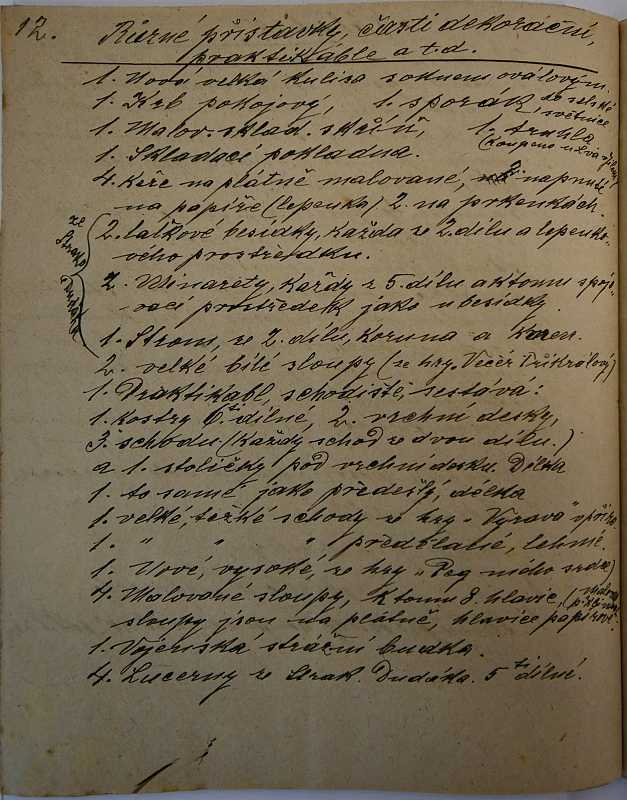 12.
Různé přístavky, části dekorační,
praktikáble a t d.
1. Nová velká kulisa s oknem oválovým.
1. Krb pokojový, 1. sporák do selské
světnice
1. Malov. sklad. skříň, 1. truhla
(koupeno u
1. Skládací pokladna.
4. Keře na plátně malované, napnuté
na papíře (lepenka) 2. na prkenkách.
ze Strak. Dudáka
2. laťkové besídky, každá ze 2. dílu a lepenko-
vého prostředku.
2. Minarety, každý z 5. dílu a k tomu spojo-
vací prostředek jako u besídky.
1. Strom, ze 2. dílu, koruna a kořen.
2. velké bílé sloupy (ze hry „Večer Tříkrálový)
1. Praktikabl, schodiště, sestává:
1. kostry 6ti dílné, 2. vrchní desky,
3. schodu (každý schod ze dvou dílu.)
a 1. stoličky pod vrchní desku. Délka
1. to samé jako předešlý, délka
1. velké, těžké schody ze hry „Vyrava"
1. " " " předělané, lehké.
1. Nové, vysoké, ze hry „Peg mého srdce)
4. Malované sloupy, k tomu 8. hlavic, (malov.
sloupy jsou na plátně, hlavice papírové.
1. Vojenská strážní budka.
4. Lucerny ze Strak. Dudáka. 5ti dílné.